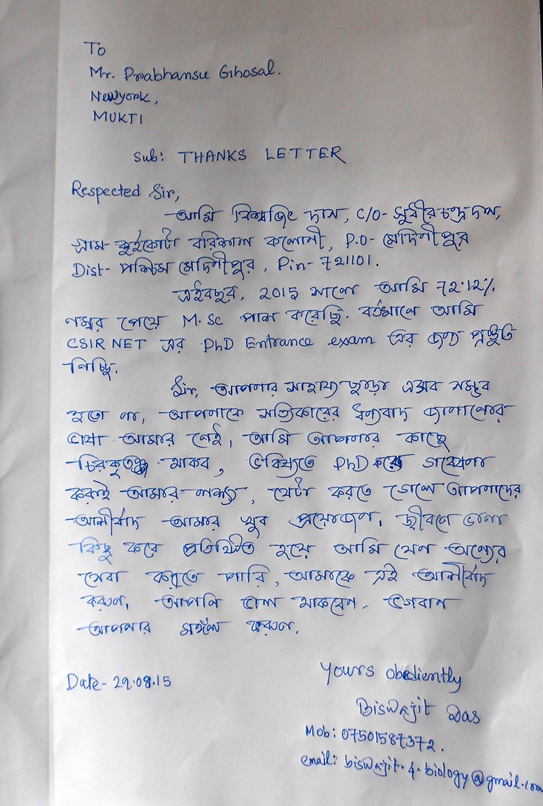 To
Mr. Prabhansu Ghosal.
Newyork,
MUKTI
Sub: THANKS LETTER
Respected Sir,
আমি বিশ্বজিৎ দাস, C/O- সুধীর চন্দ্র দাস,
গ্রাম- কুইকোটা বরিশাল কলোনী, P.O- মেদিনীপুর
Dist- পশ্চিম মেদিনীপুর, Pin- 721101.
এইবছর, 2015 সালে আমি 72.12%
নম্বর পেয়ে M.Sc পাশ করেছি. বর্তমানে আমি
CSIR NET এর PhD Entrance exam এর জন্য প্রস্তুতি
নিচ্ছি.
Sir, আপনার সাহায্য ছাড়া এসব সম্ভব
হতো না, আপনাকে সত্যিকারের ধন্যবাদ জানানোর
ভাষা আমার নেই, আমি আপনার কাছে
চিরকৃতজ্ঞ থাকব, ভবিষ্যতে PhD গবেষণা
করাই আমার লক্ষ্য, যেটা করতে গেলে আপনাদের
আশীর্বাদ আমার খুব প্রয়োজন. জীবনে ভাল
কিছু করে প্রতিষ্ঠিত হয়ে আমি যেন অন্যের
সেবা করতে পারি, আমাকে এই আশীর্বাদ
করুন. আপনি ভাল থাকবেন. ভগবান
আপনার মঙ্গল করুন.
Date- 29.08.15
Yours obediently
Biswajit Das
Mob: 07501587372.
email: biswajit.4.biology@gmail.com